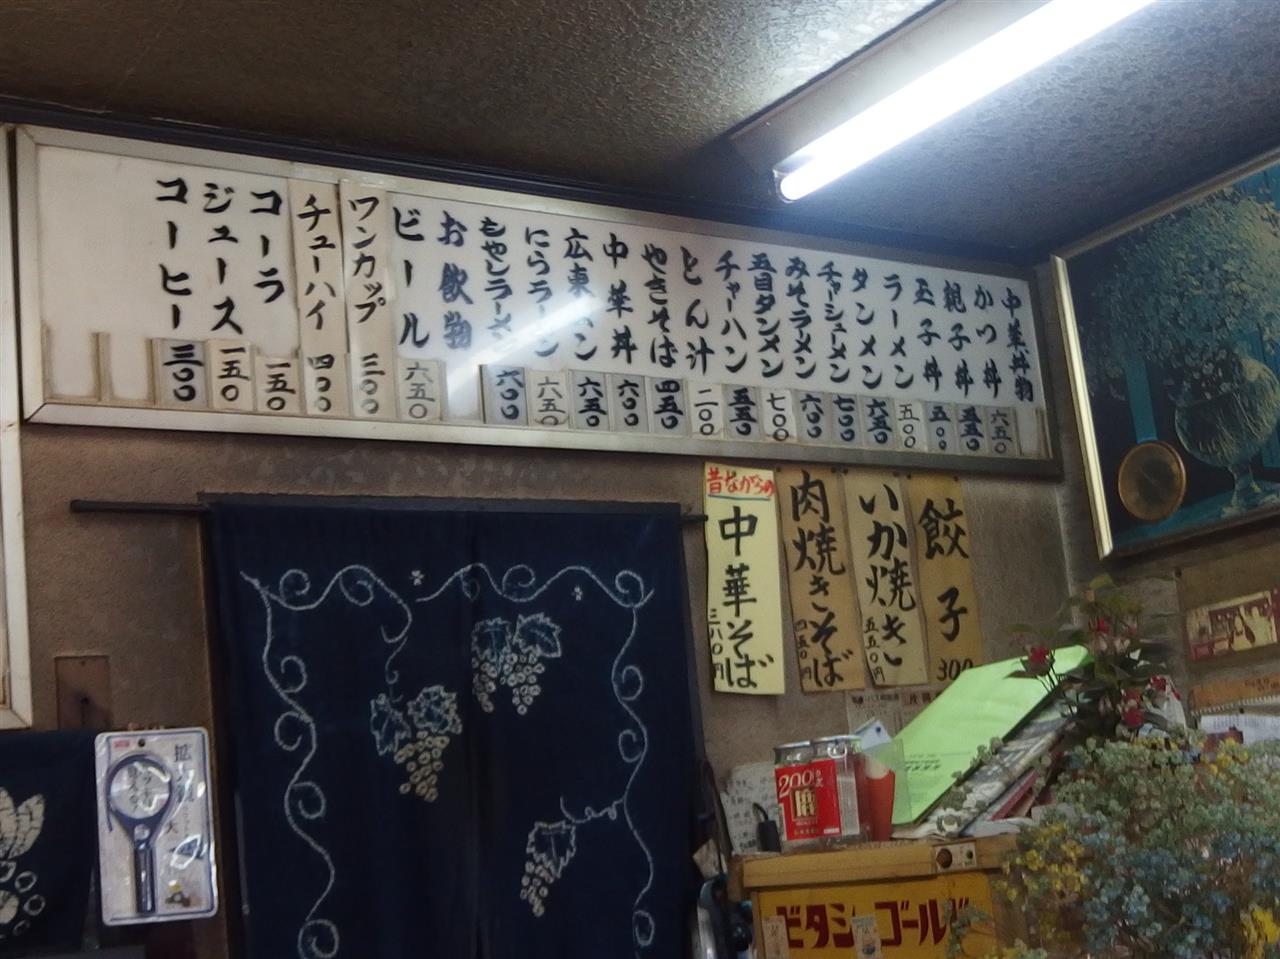 中華丼物
かつ丼 六五〇
親子丼 五五〇
玉子丼 五〇〇
ラーメン 五〇〇
タンメン 六五〇
チャーシューメン 七〇〇
みそラーメン 六〇〇
五目タンメン 七〇〇
チャーハン 五五〇
とん汁 二〇〇
やきそば 四五〇
中華丼 六〇〇
広東メン 六五〇
にらラーメン 六五〇
もやしラーメン 六〇〇
お飲物
ビール 六五〇
ワンカップ 三〇〇
チューハイ 四〇〇
コーラ 一五〇
ジュース 一五〇
コーヒー 三〇〇
餃子 300
いか焼き 五五〇円
肉焼きそば 四五〇円
昔ながらの
中華そば 三八〇円
200
ビタシーゴールド